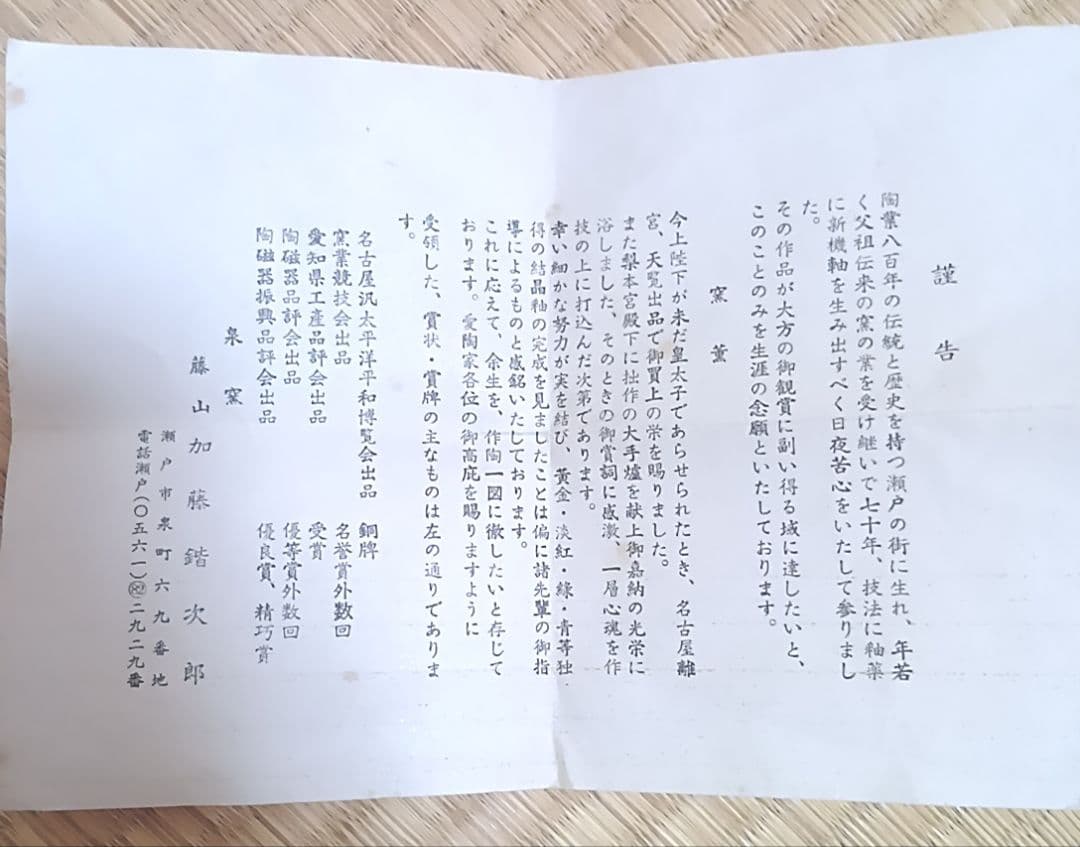 謹告
陶業八百年の伝統と歴史を持つ瀬戸の街に生れ、年若
く父祖伝来の窯の業を受け継いで七十年、技法に釉薬
に新機軸を生み出すべく日夜苦心をいたして参りまし
た。
その作品が大方の御観賞に副い得る域に達したいと、
このことのみを生涯の念願といたしております。
窯薫
今上陛下が未だ皇太子であらせられたとき、名古屋離
宮、天覧出品で御買上の栄を賜りました。
また梨本宮殿下に拙作の大手爐を献上御嘉納の光栄に
浴しました、そのときの御賞詞に感激、一層心魂を作
技の上に打込んだ次第であります。
幸い細かな努力が実を結び、黄金・淡紅・緑・青等独
得の結晶釉の完成を見ましたことは偏に諸先輩の御指
導によるものと感銘いたしております。
これに応えて、余生を、作陶一図に徹したいと存じて
おります。愛陶家各位の御高庇を賜りますように
受領した、賞状・賞牌の主なものは左の通りでありま
す。
名古屋汎太平洋平和博覧会出品 銅牌
窯業競技会出品 名誉賞外数回
愛知県工産品評会出品 受賞
陶磁器品評会出品 優等賞外数回
陶磁器振興品評会出品 優良賞、精巧賞
泉窯
藤山加藤鍇次郎
瀬戸市泉町六九番地
電話瀬戸(〇五六一)82二九二九番